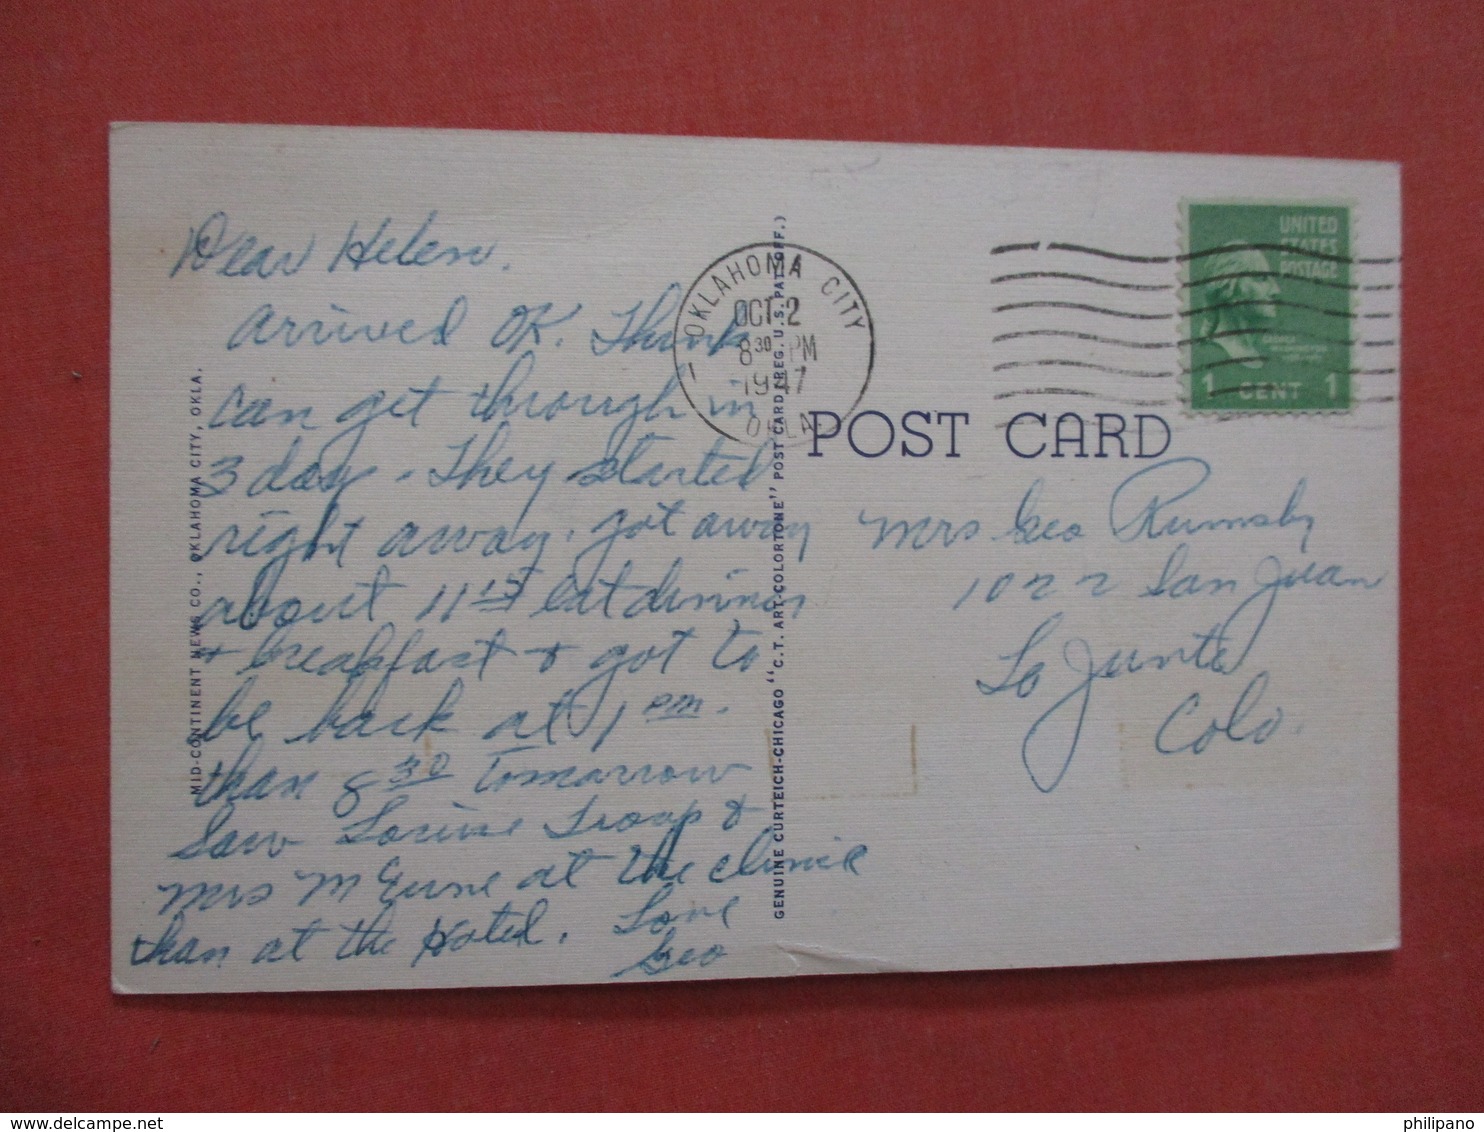 Dear Helen.
Arrived OK. Think
can get through in
3 days - They started
right away. got away
about 11 15 eat dinner
+ breakfast & got to
be back at 1 PM.
than 8 30 tomorrow
Saw Troop &
Mrs at the clinic
than at the Hotel. Love
Geo
MID-CONTINENT NEWS CO., OKLAHOMA CITY, OKLA.
GENUINE CURTEICH-CHICAGO "C.T. ART-COLORTONE" POST CARD (REG. U.S. PAT. OFF.)
OKLAHOMA CITY
OCT 2
8 30 PM
1947
OKLA.
UNITED
STATES
POSTAGE
1 CENT 1
POST CARD
Mrs Geo Rumsby
1022 San Juan
La Junta
Colo.
delcampe.net
philipano